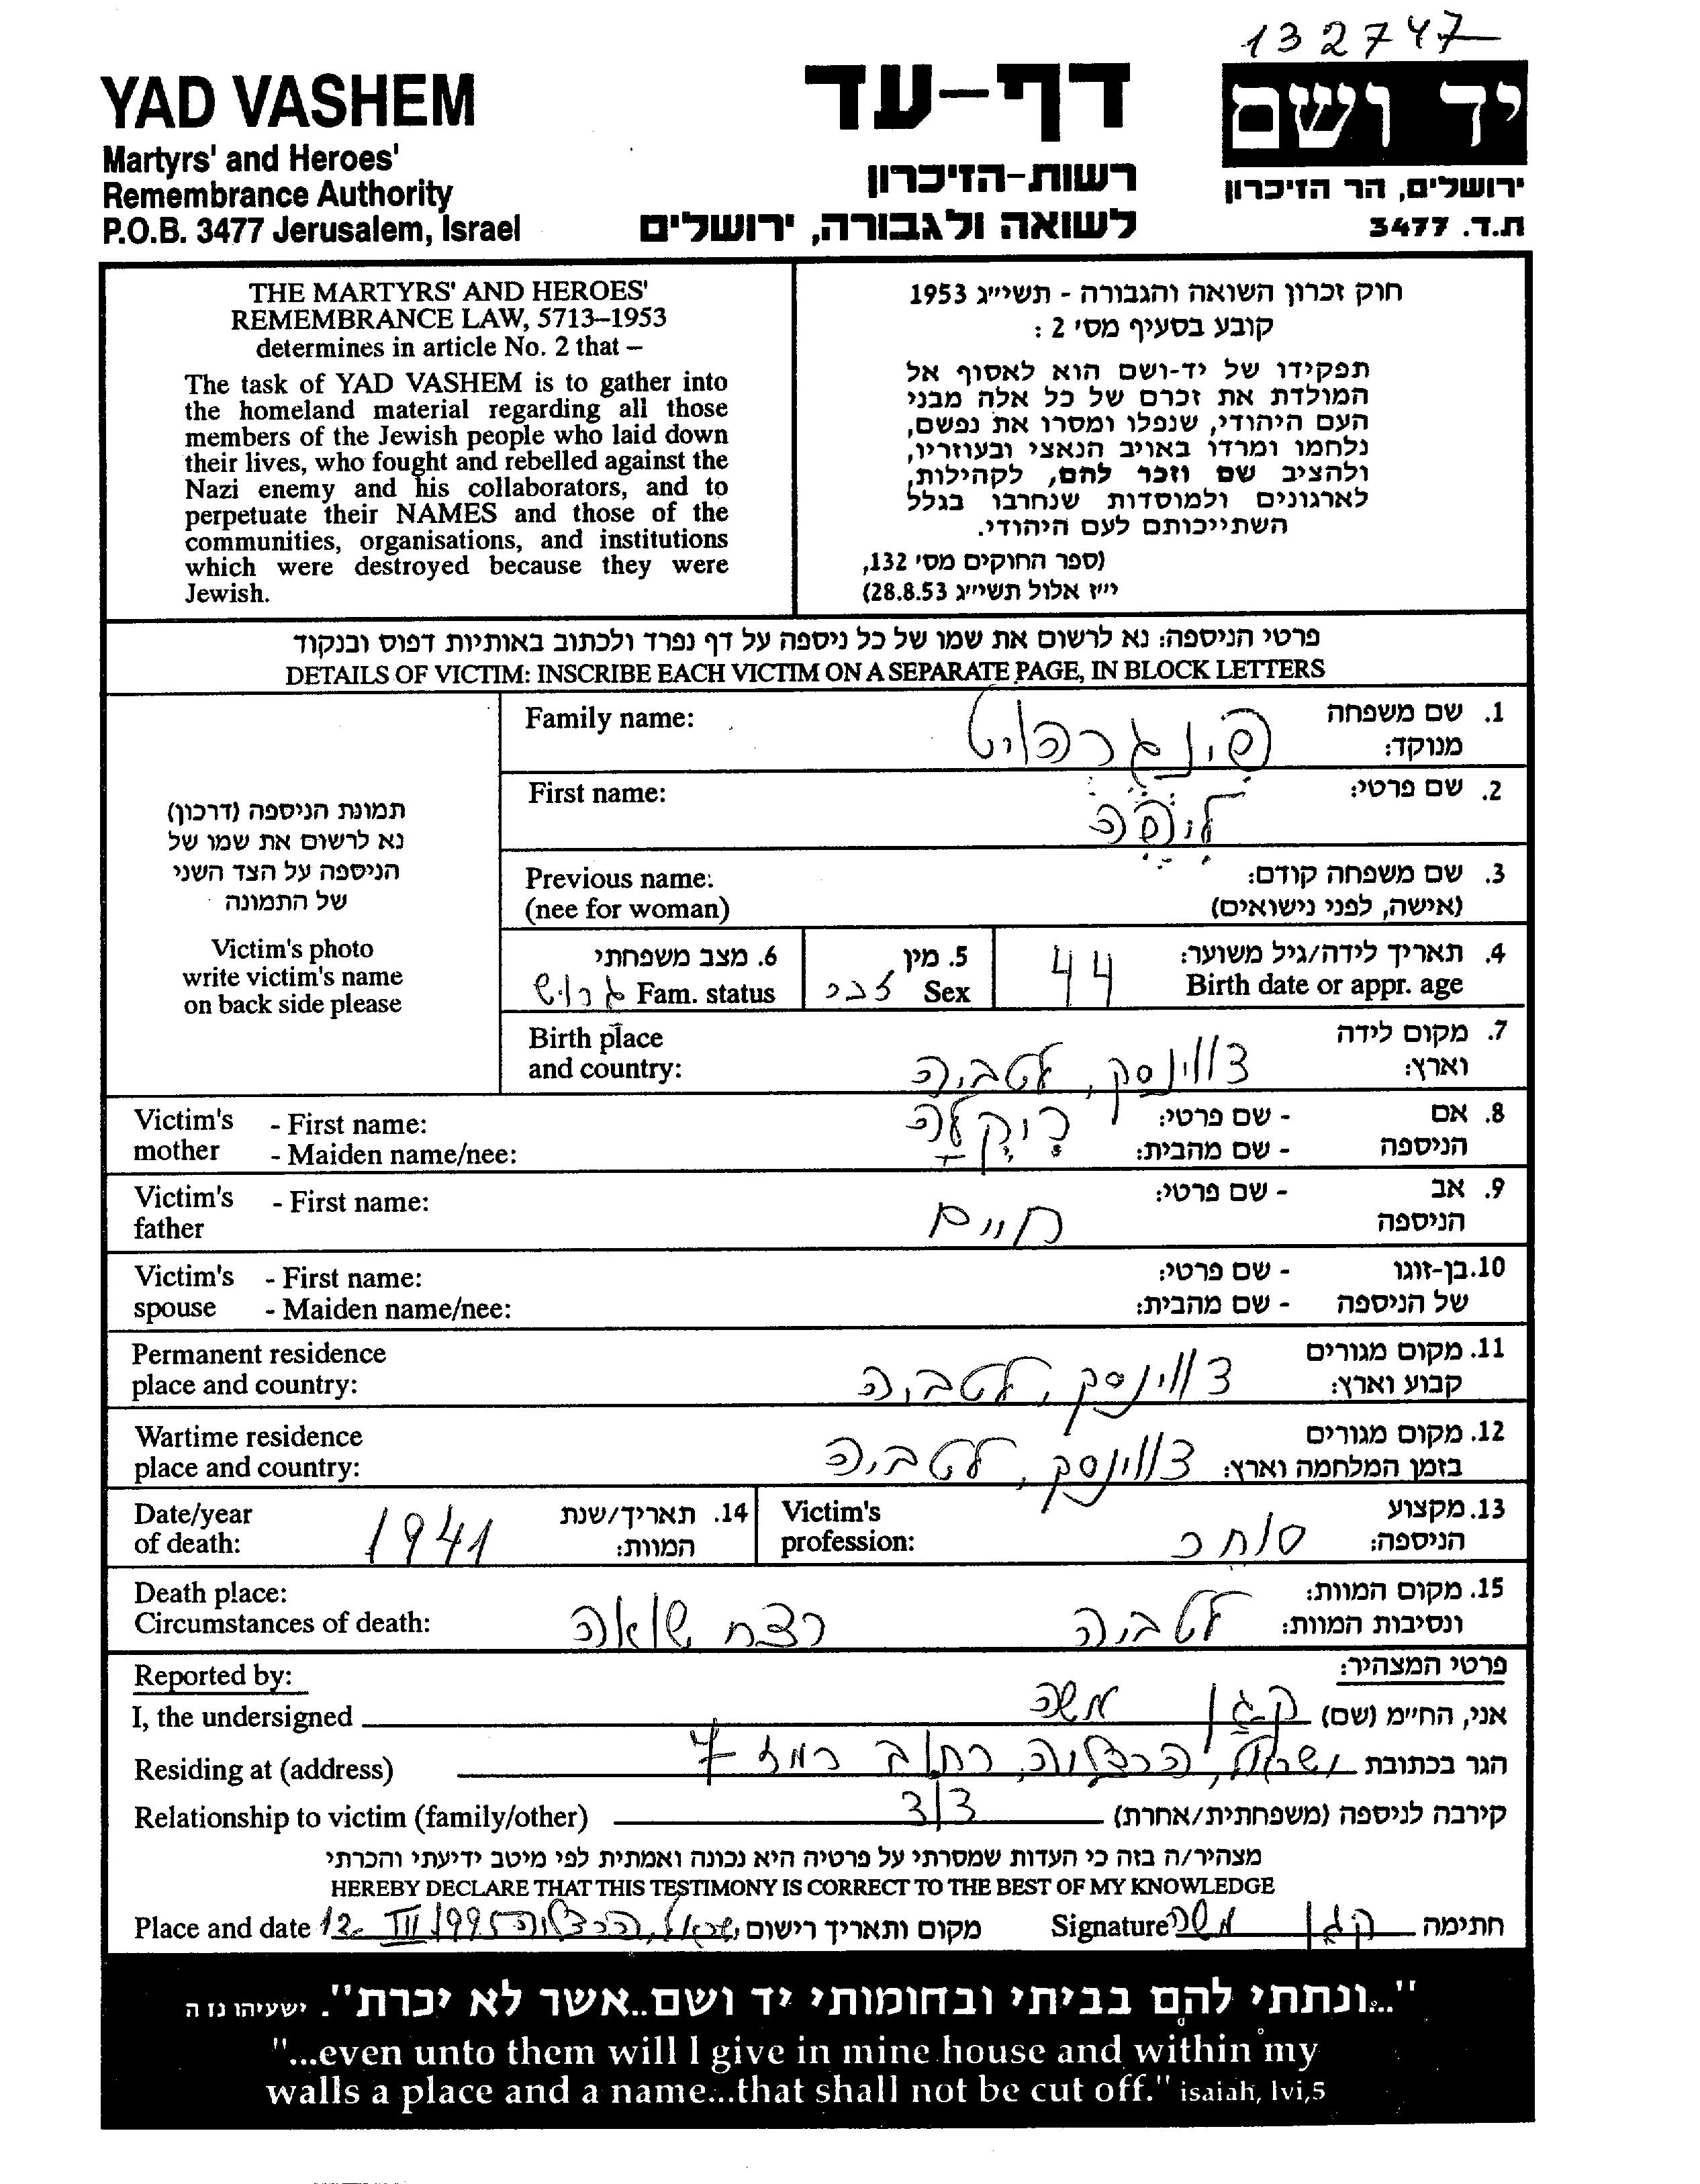 132747
YAD VASHEM
Martyrs' and Heroes'
Remembrance Authority
P.O.B. 3477 Jerusalem, Israel
דף-עד
רשות-הזיכרון
לשואה ולגבורה, ירושלים
יד ושם
ירושלים, הר הזיכרון
ת.ד. 3477
THE MARTYRS' AND HEROES'
REMEMBRANCE LAW, 5713–1953
determines in article No. 2 that –
The task of YAD VASHEM is to gather into
the homeland material regarding all those
members of the Jewish people who laid down
their lives, who fought and rebelled against the
Nazi enemy and his collaborators, and to
perpetuate their NAMES and those of the
communities, organisations, and institutions
which were destroyed because they were
Jewish.
חוק זכרון השואה והגבורה - תשי״ג 1953
קובע בסעיף מס׳ 2 :
תפקידו של יד-ושם הוא לאסוף אל
המולדת את זכרם של כל אלה מבני
העם היהודי, שנפלו ומסרו את נפשם,
נלחמו ומרדו באויב הנאצי ובעוזריו,
ולהציב שם וזכר להם, לקהילות,
לארגונים ולמוסדות שנחרבו בגלל
השתייכותם לעם היהודי.
(ספר החוקים מס׳ 132,
י״ז אלול תשי״ג 28.8.53)
פרטי הניספה: נא לרשום את שמו של כל ניספה על דף נפרד ולכתוב באותיות דפוס ובנקוד
DETAILS OF VICTIM: INSCRIBE EACH VICTIM ON A SEPARATE PAGE, IN BLOCK LETTERS
תמונת הניספה (דרכון)
נא לרשום את שמו של
הניספה על הצד השני
של התמונה
Victim's photo
write victim's name
on back side please
1. שם משפחה
מנוקד:
Family name:
2. שם פרטי:
First name:
3. שם משפחה קודם:
(אישה, לפני נישואים)
Previous name:
(nee for woman)
4. תאריך לידה/גיל משוער:
Birth date or appr. age
44
5. מין
Sex זכר
6. מצב משפחתי
Fam. status גרוש
7. מקום לידה
וארץ:
Birth place
and country:
דווינסק, לטביה
8. אם
הניספה
- שם פרטי:
- שם מהבית:
Victim's
mother
- First name:
- Maiden name/nee:
ריקלה
9. אב
הניספה
- שם פרטי:
Victim's
father
- First name:
חיים
10. בן-זוגו
של הניספה
- שם פרטי:
- שם מהבית:
Victim's
spouse
- First name:
- Maiden name/nee:
11. מקום מגורים
קבוע וארץ:
Permanent residence
place and country:
דווינסק, לטביה
12. מקום מגורים
בזמן המלחמה וארץ:
Wartime residence
place and country:
דווינסק, לטביה
13. מקצוע
הניספה:
Victim's
profession:
סוחר
14. תאריך/שנת
המוות:
Date/year
of death:
1941
15. מקום המוות:
ונסיבות המוות:
Death place:
Circumstances of death:
לטביה רצח שואה
פרטי המצהיר:
Reported by:
אני, החי״מ (שם) קגן משה
I, the undersigned
הגר בכתובת ישראל, הרצליה, רחוב רמז 7
Residing at (address)
קירבה לניספה (משפחתית/אחרת) דוד
Relationship to victim (family/other)
מצהיר/ה בזה כי העדות שמסרתי על פרטיה היא נכונה ואמתית לפי מיטב ידיעתי והכרתי
HEREBY DECLARE THAT THIS TESTIMONY IS CORRECT TO THE BEST OF MY KNOWLEDGE
חתימה קגן משה Signature
מקום ותאריך רישום ישראל, הרצליה 12. III 1995 Place and date
"...ונתתי להם בביתי ובחומותי יד ושם..אשר לא יכרת". ישעיהו נז ה
"...even unto them will I give in mine house and within my
walls a place and a name...that shall not be cut off." isaiah, lvi,5